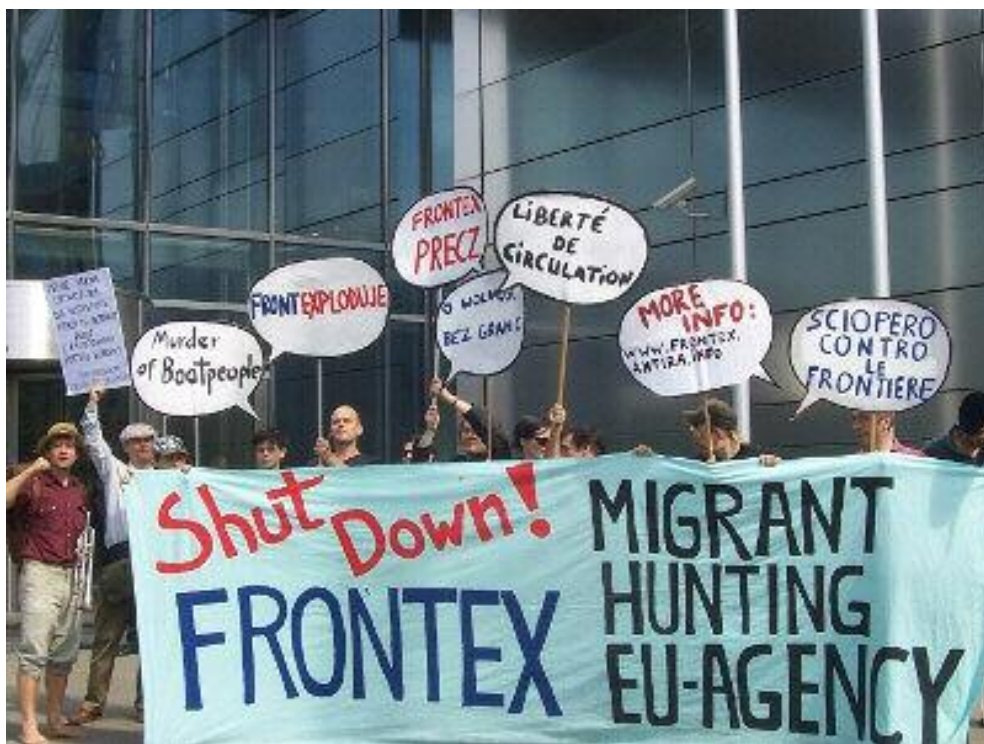 Murder
of Boatpeople!
FRONTEXPLODUJE
FRONTEX
PRECZ
BEZ GRANIC
LIBERTÉ
DE
CIRCULATION
MORE
INFO:
WWW.FRONTEX.
ANTIRA.INFO
SCIOPERO
CONTRO
LE
FRONTIERE
Shut Down!
FRONTEX
MIGRANT
HUNTING
EU-AGENCY